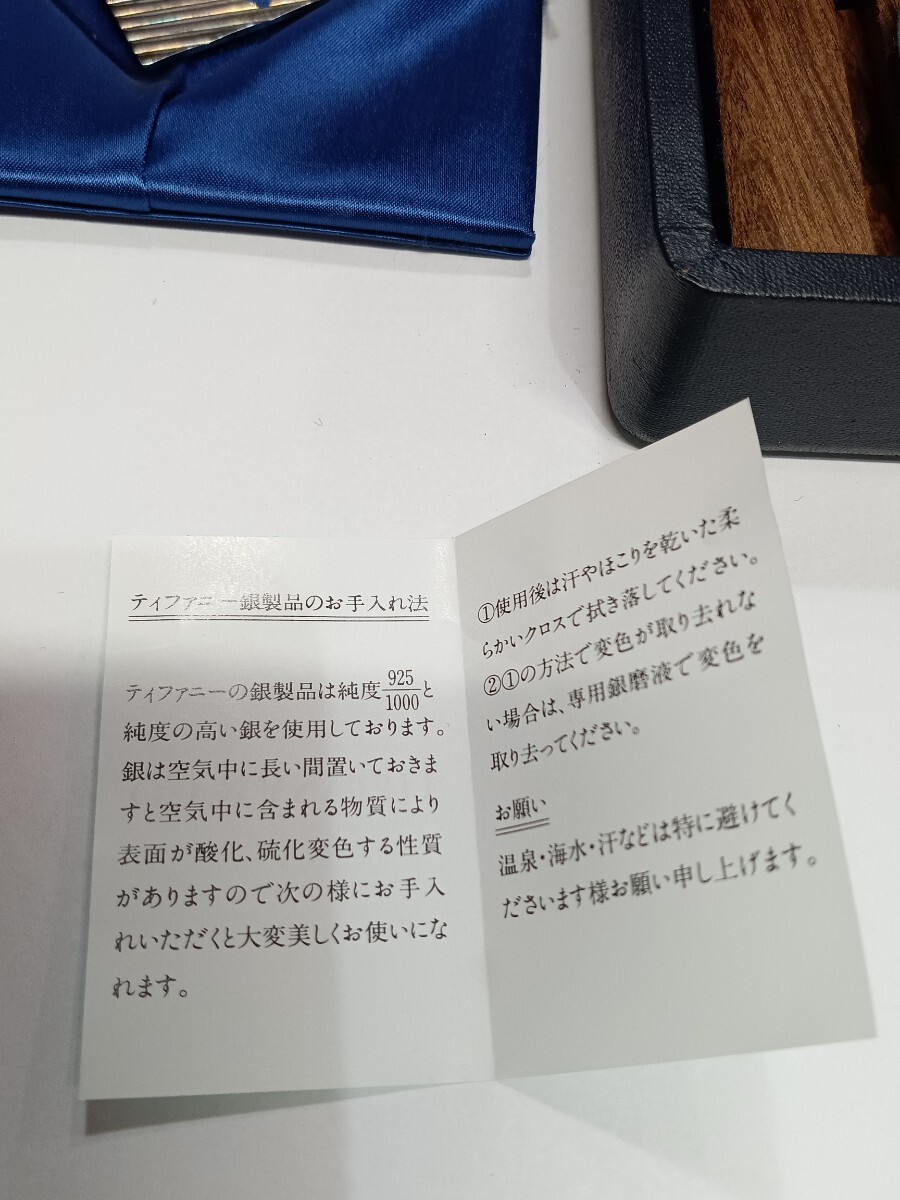 ティファニー銀製品のお手入れ法
ティファニーの銀製品は純度925/1000と
純度の高い銀を使用しております。
銀は空気中に長い間置いておきま
すと空気中に含まれる物質により
表面が酸化、硫化変色する性質
がありますので次の様にお手入
れいただくと大変美しくお使いにな
れます。
①使用後は汗やほこりを乾いた柔
らかいクロスで拭き落してください。
②①の方法で変色が取り去れな
い場合は、専用銀磨液で変色を
取り去ってください。
お願い
温泉・海水・汗などは特に避けてく
ださいます様お願い申し上げます。